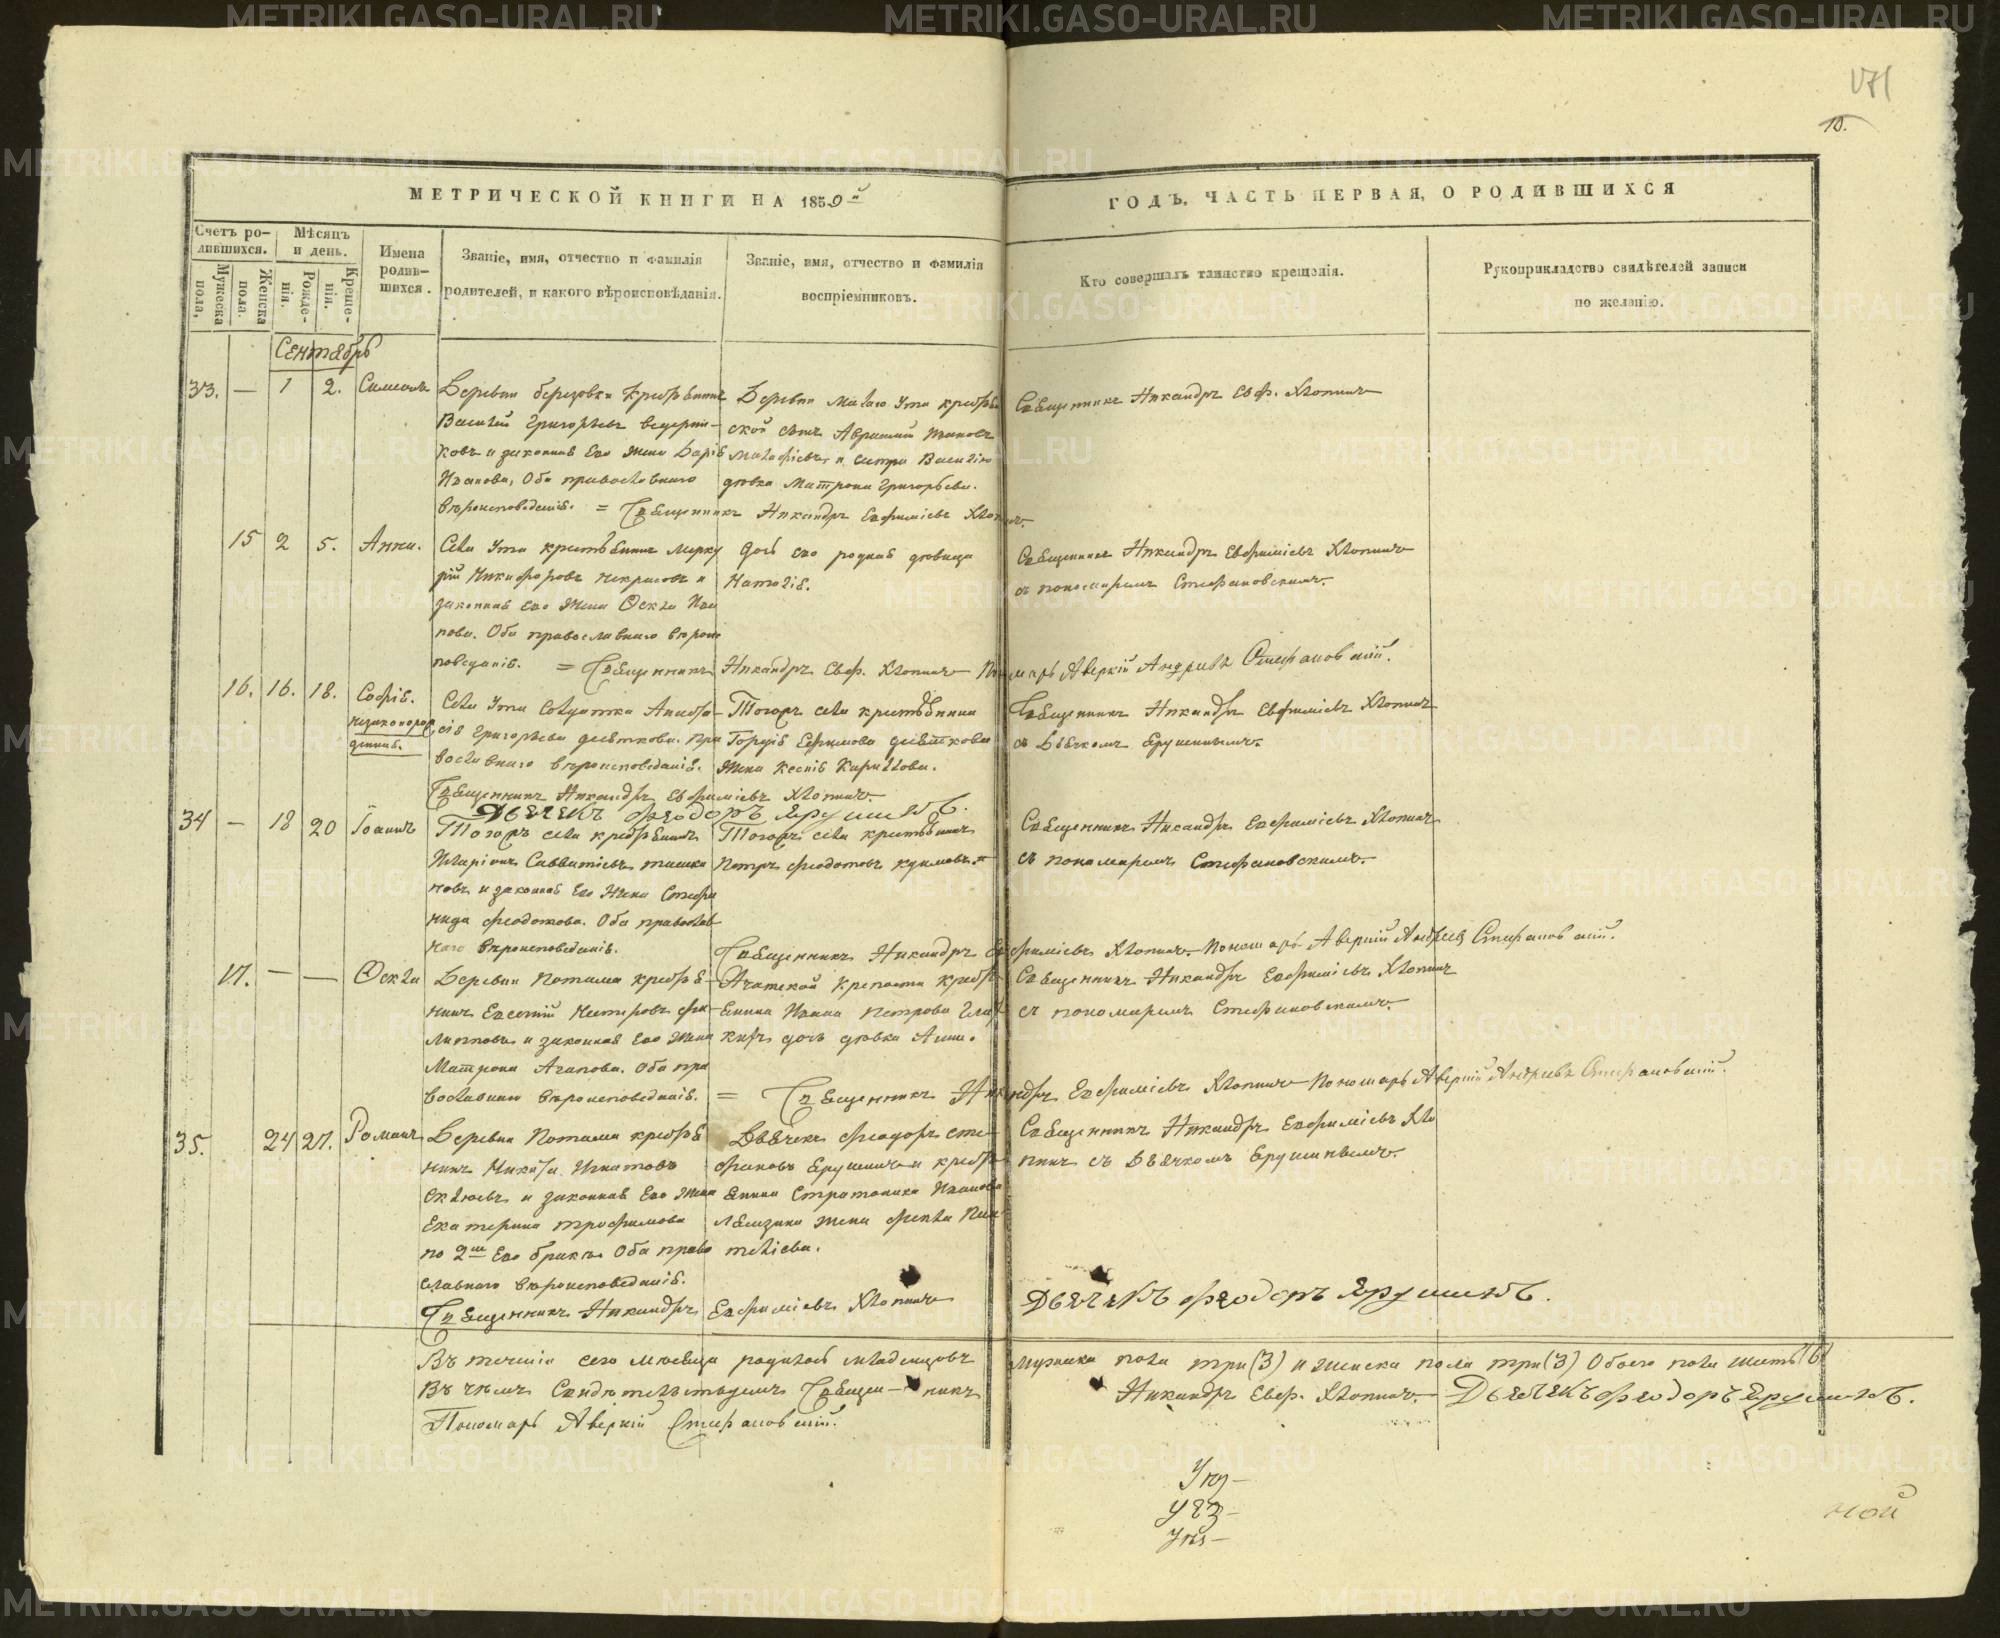 171
10.
МЕТРИЧЕСКОЙ КНИГИ НА 1859й
ГОДЪ, ЧАСТЬ ПЕРВАЯ, О РОДИВШИХСЯ
Счетъ родившихся.
Мужеска пола.
Женска пола.
Мѣсяцъ и день.
Рожденія.
Крещенія.
Имена родившихся.
Званіе, имя, отчество и фамилія
родителей, и какого вѣроисповѣданія.
Званіе, имя, отчество и фамилія
воспріемниковъ.
Кто совершалъ таинство крещенія.
Рукоприкладство свидѣтелей записи
по желанію.
Сентябрь
33. — 1 2. Симеонъ
Деревни березовки крестьянинъ
Василій Григорьевъ
и законная его жена Дарія
Иванова, Оба православнаго
вѣроисповеданія. =
Деревни Малаго Ута крестьян
ской сынъ Ивановъ
и сестра Василію
дѣвка Матрона Григорьева.
Священникъ Никандръ Евфиміевъ Хлопинъ.
Священникъ Никандръ Евф. Хлопинъ
15 2 5. Анна.
Села Ута крестьянинъ Мерку
рій Никифоровъ Некрасовъ и
законная его жена Фекла Ива
нова. Оба православнаго вѣроис
поведанія. =
Дочь его родная дѣвица
Наталія.
Священникъ Никандръ Евфиміевъ Хлопинъ
съ пономаремъ Стефановскимъ.
Священникъ Никандръ Евф. Хлопинъ Пономарь Аверкій Андреевъ Стефановскій.
16. 16. 18. Софія.
незаконорож
денная.
Села Ута Солдатка Анаста
сія Григорьева Пра
вославнаго вѣроисповеданія.
Тогожъ села крестьянина
Гордія Ефимова
жена Ксенія Кирилова.
Священникъ Никандръ Евфиміевъ Хлопинъ
съ Дьячкомъ Ерушинымъ.
Священникъ Никандръ Евфиміевъ Хлопинъ.
Дьячекъ Феодоръ Ерушинъ.
34 — 18 20 Іоаннъ
Тогожъ села крестьянинъ
Иларіонъ Савватіевъ Ташки
новъ и законная его жена Стефа
нида Феодотова. Оба православ
наго вѣроисповеданія.
Тогожъ села крестьянинъ
Петръ Феодотовъ
Священникъ Никандръ Евфиміевъ Хлопинъ
съ пономаремъ Стефановскимъ.
Священникъ Никандръ Евфиміевъ Хлопинъ Пономарь Аверкій Андреевъ Стефановскій.
17. — — Фекла
Деревни Потама крестья
нинъ Евсевій Нестеровъ Фи
липповъ и законная его жена
Матрона Агапова. Оба пра
вославнаго вѣроисповеданія. =
Ачитской крепости кресть
янина Ивана Петрова
дочь дѣвка Анна.
Священникъ Никандръ Евфиміевъ Хлопинъ
съ пономаремъ Стефановскимъ.
Священникъ Никандръ Евфиміевъ Хлопинъ Пономарь Аверкій Андреевъ Стефановскій.
35. 24 27. Романъ
Деревни Потама крестья
нинъ Никита Игнатовъ
и законная его жена
Екатерина Трофимова
по 2му его браку. Оба право
славнаго вѣроисповеданія.
Дьячекъ Феодоръ Сте
фановъ Ерушинъ и кресть
янина Стратоника Иванова
жена Фекла Пан
телѣева.
Священникъ Никандръ Евфиміевъ Хло
пинъ съ Дьячкомъ Ерушинымъ.
Священникъ Никандръ Евфиміевъ Хлопинъ
Дьячекъ Феодоръ Ерушинъ.
Въ теченіи сего мѣсяца родилось младенцовъ мужеска пола три (3) и женска пола три (3) Обоего пола шесть (6)
Въ чемъ Свидѣтельствуемъ Священникъ Никандръ Евф. Хлопинъ. Дьячекъ Феодоръ Ерушинъ.
Пономарь Аверкій Стефановскій.
ной
METRIKI.GASO-URAL.RU